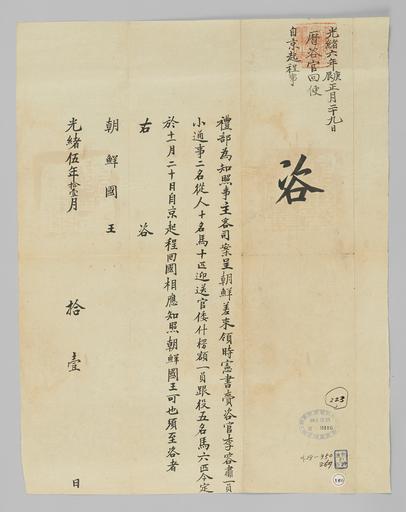 光緒六年庚辰正月二十九日
曆咨官回便
自京起程事
咨
禮部為知照事主客司案呈朝鮮差來領時憲書賫咨官李容肅一員
小通事二名從人十名馬十匹迎送官倭什楞額一員跟役五名馬六匹今定
於十一月二十日自京起程回國相應知照朝鮮國王可也須至咨者
右咨
朝鮮國王
光緒伍年拾壹月拾壹日
223